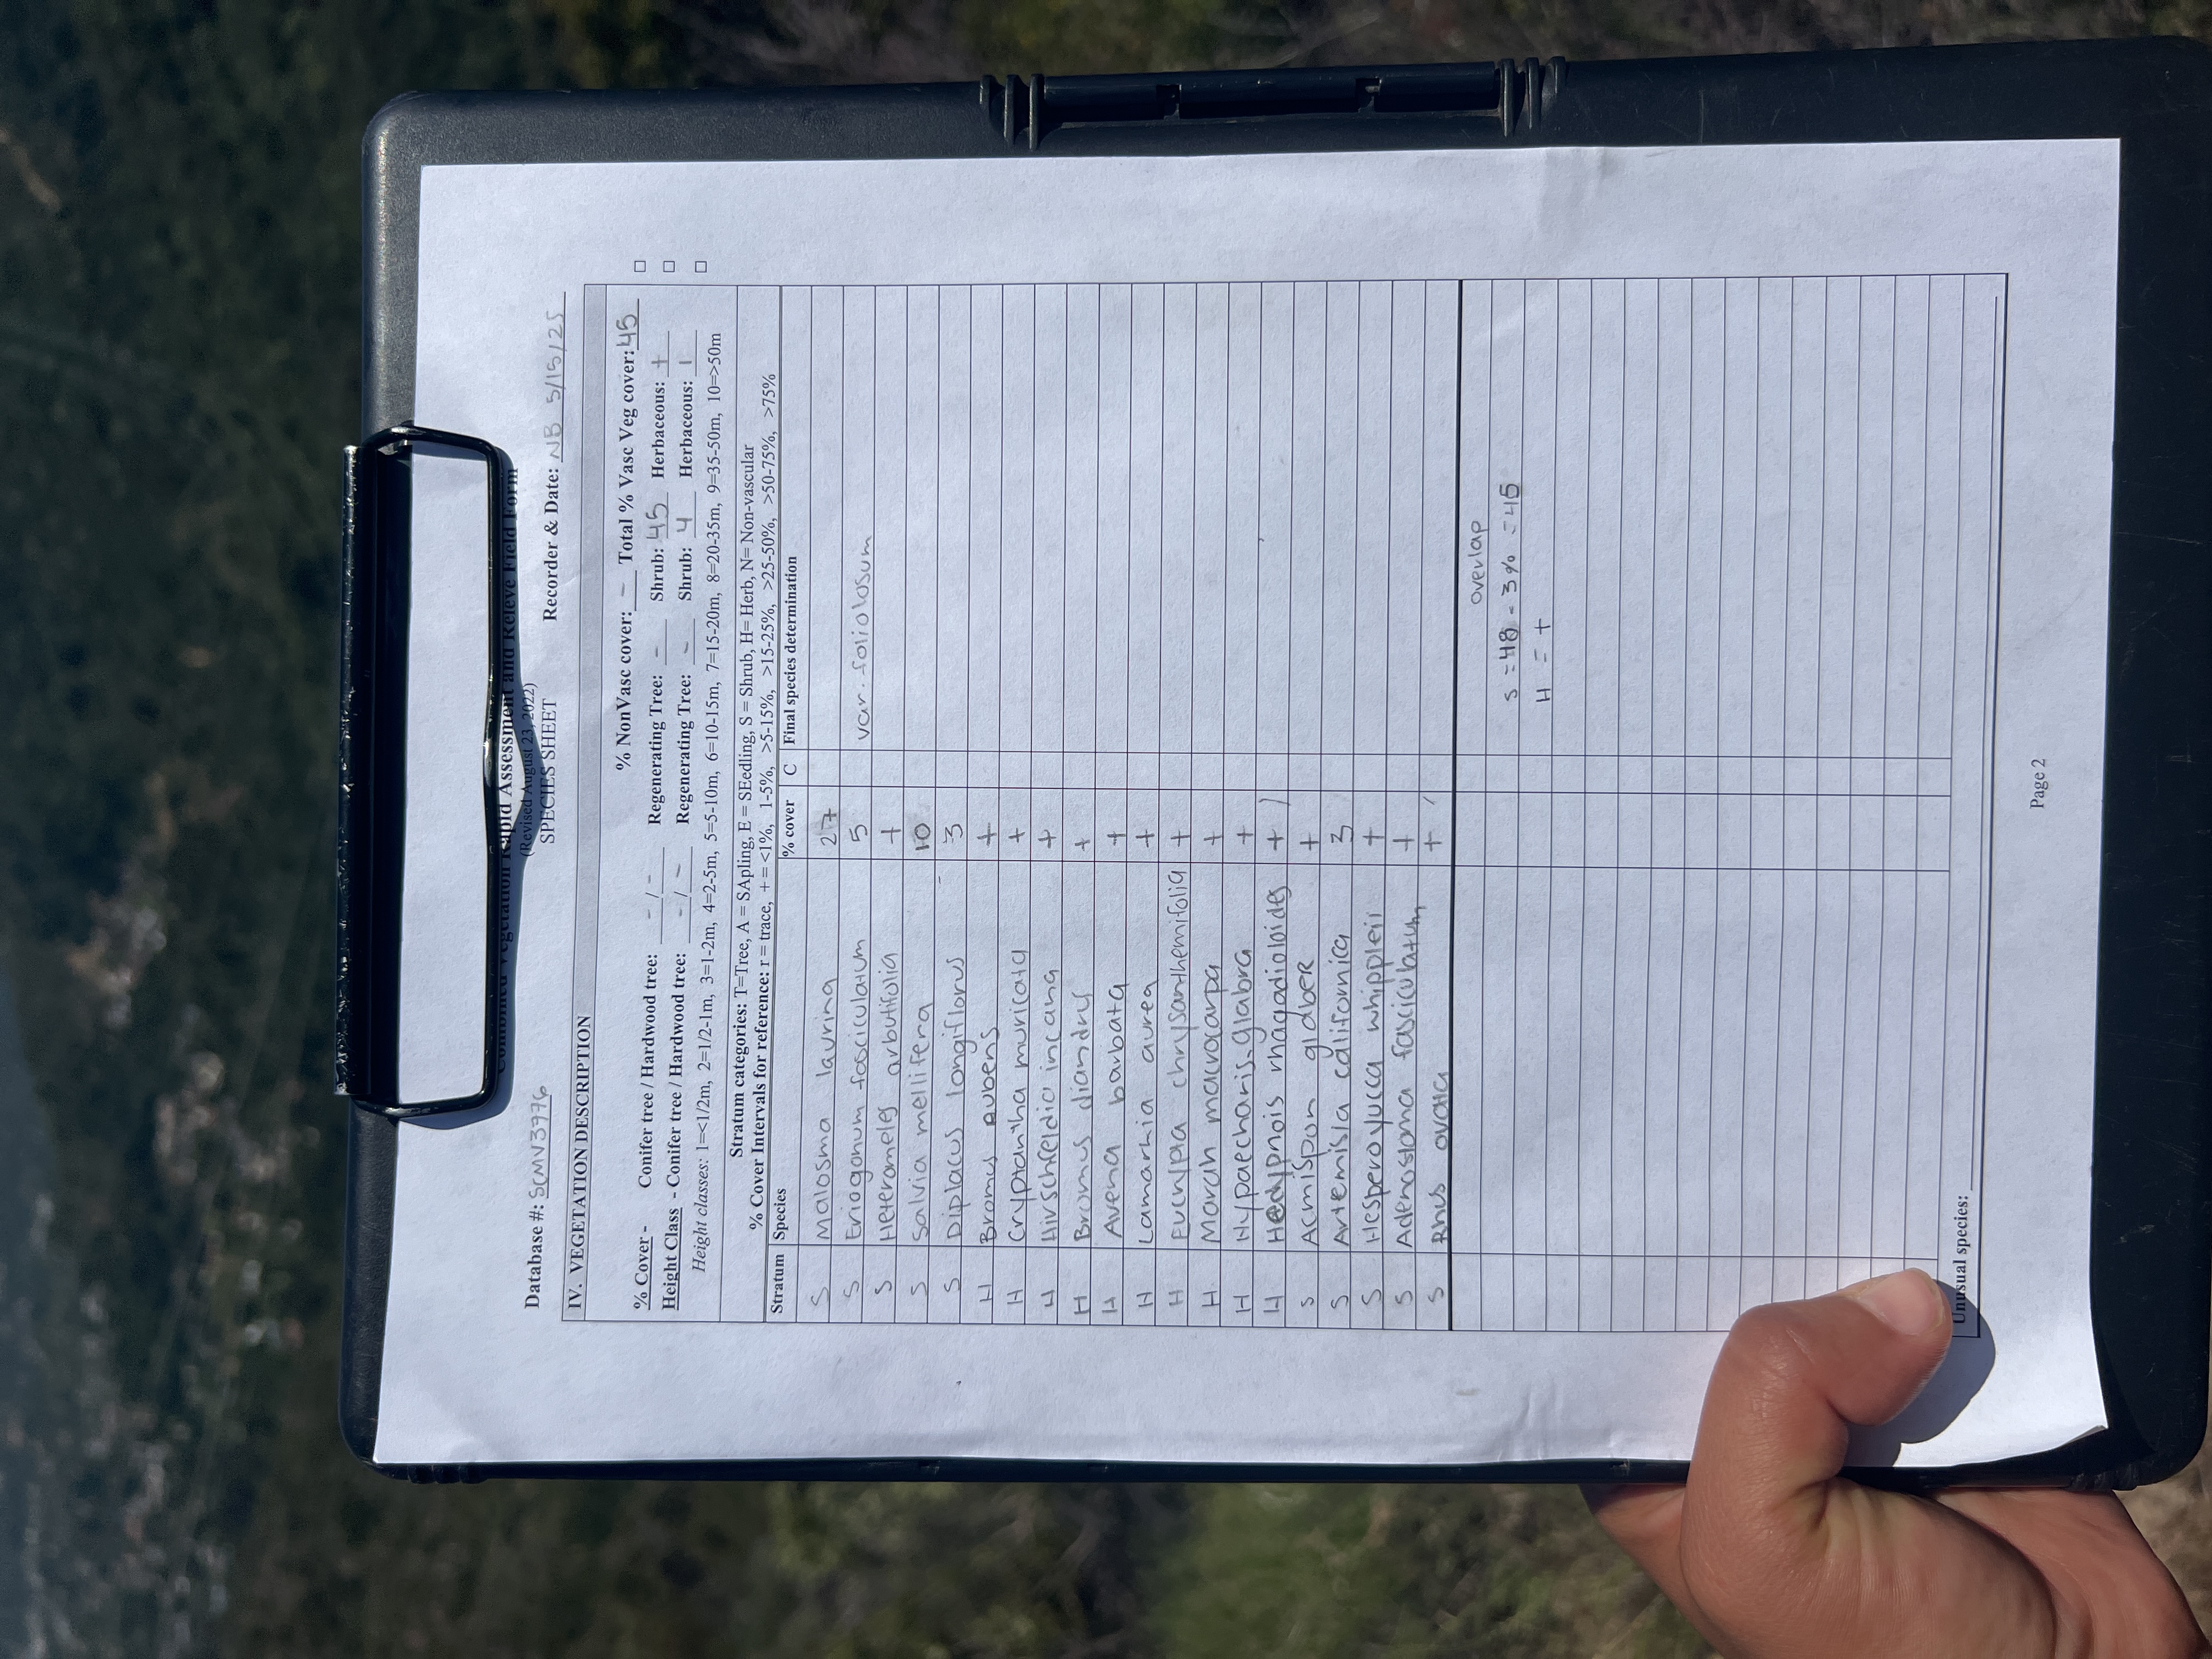 Combined Vegetation Rapid Assessment and Relevé Field Form
(Revised August 23, 2022)
SPECIES SHEET
Database #: SCMV3976 Recorder & Date: NB 5/15/25
IV. VEGETATION DESCRIPTION
% NonVasc cover: - Total % Vasc Veg cover: 45
% Cover - Conifer tree / Hardwood tree: - / - Regenerating Tree: - Shrub: 45 Herbaceous: +
Height Class - Conifer tree / Hardwood tree: - / - Regenerating Tree: - Shrub: 4 Herbaceous: 1
Height classes: 1=<1/2m, 2=1/2-1m, 3=1-2m, 4=2-5m, 5=5-10m, 6=10-15m, 7=15-20m, 8=20-35m, 9=35-50m, 10=>50m
Stratum categories: T=Tree, A = SApling, E = SEedling, S = Shrub, H= Herb, N= Non-vascular
% Cover Intervals for reference: r = trace, + = <1%, 1-5%, >5-15%, >15-25%, >25-50%, >50-75%, >75%
Stratum Species % cover C Final species determination
S Malosma laurina 27
S Eriogonum fasciculatum 5 var. foliolosum
S Heteromeles arbutifolia +
S Salvia mellifera 10
S Diplacus longiflorus 3
H Bromus rubens +
H Cryptantha muricata +
H Hirschfeldia incana +
H Bromus diandrus +
H Avena barbata +
H Lamarkia aurea +
H Eucrypta chrysanthemifolia +
H Marah macrocarpa +
H Hypaecharis glabra +
H Hedypnois rhagadioloides +
S Acmispon glaber +
S Artemisia californica 3
S Hesperoyucca whipplei +
S Adenostoma fasciculatum +
S Rhus ovata +
overlap
S = 48 - 3% = 45
H = +
Unusual species:
Page 2